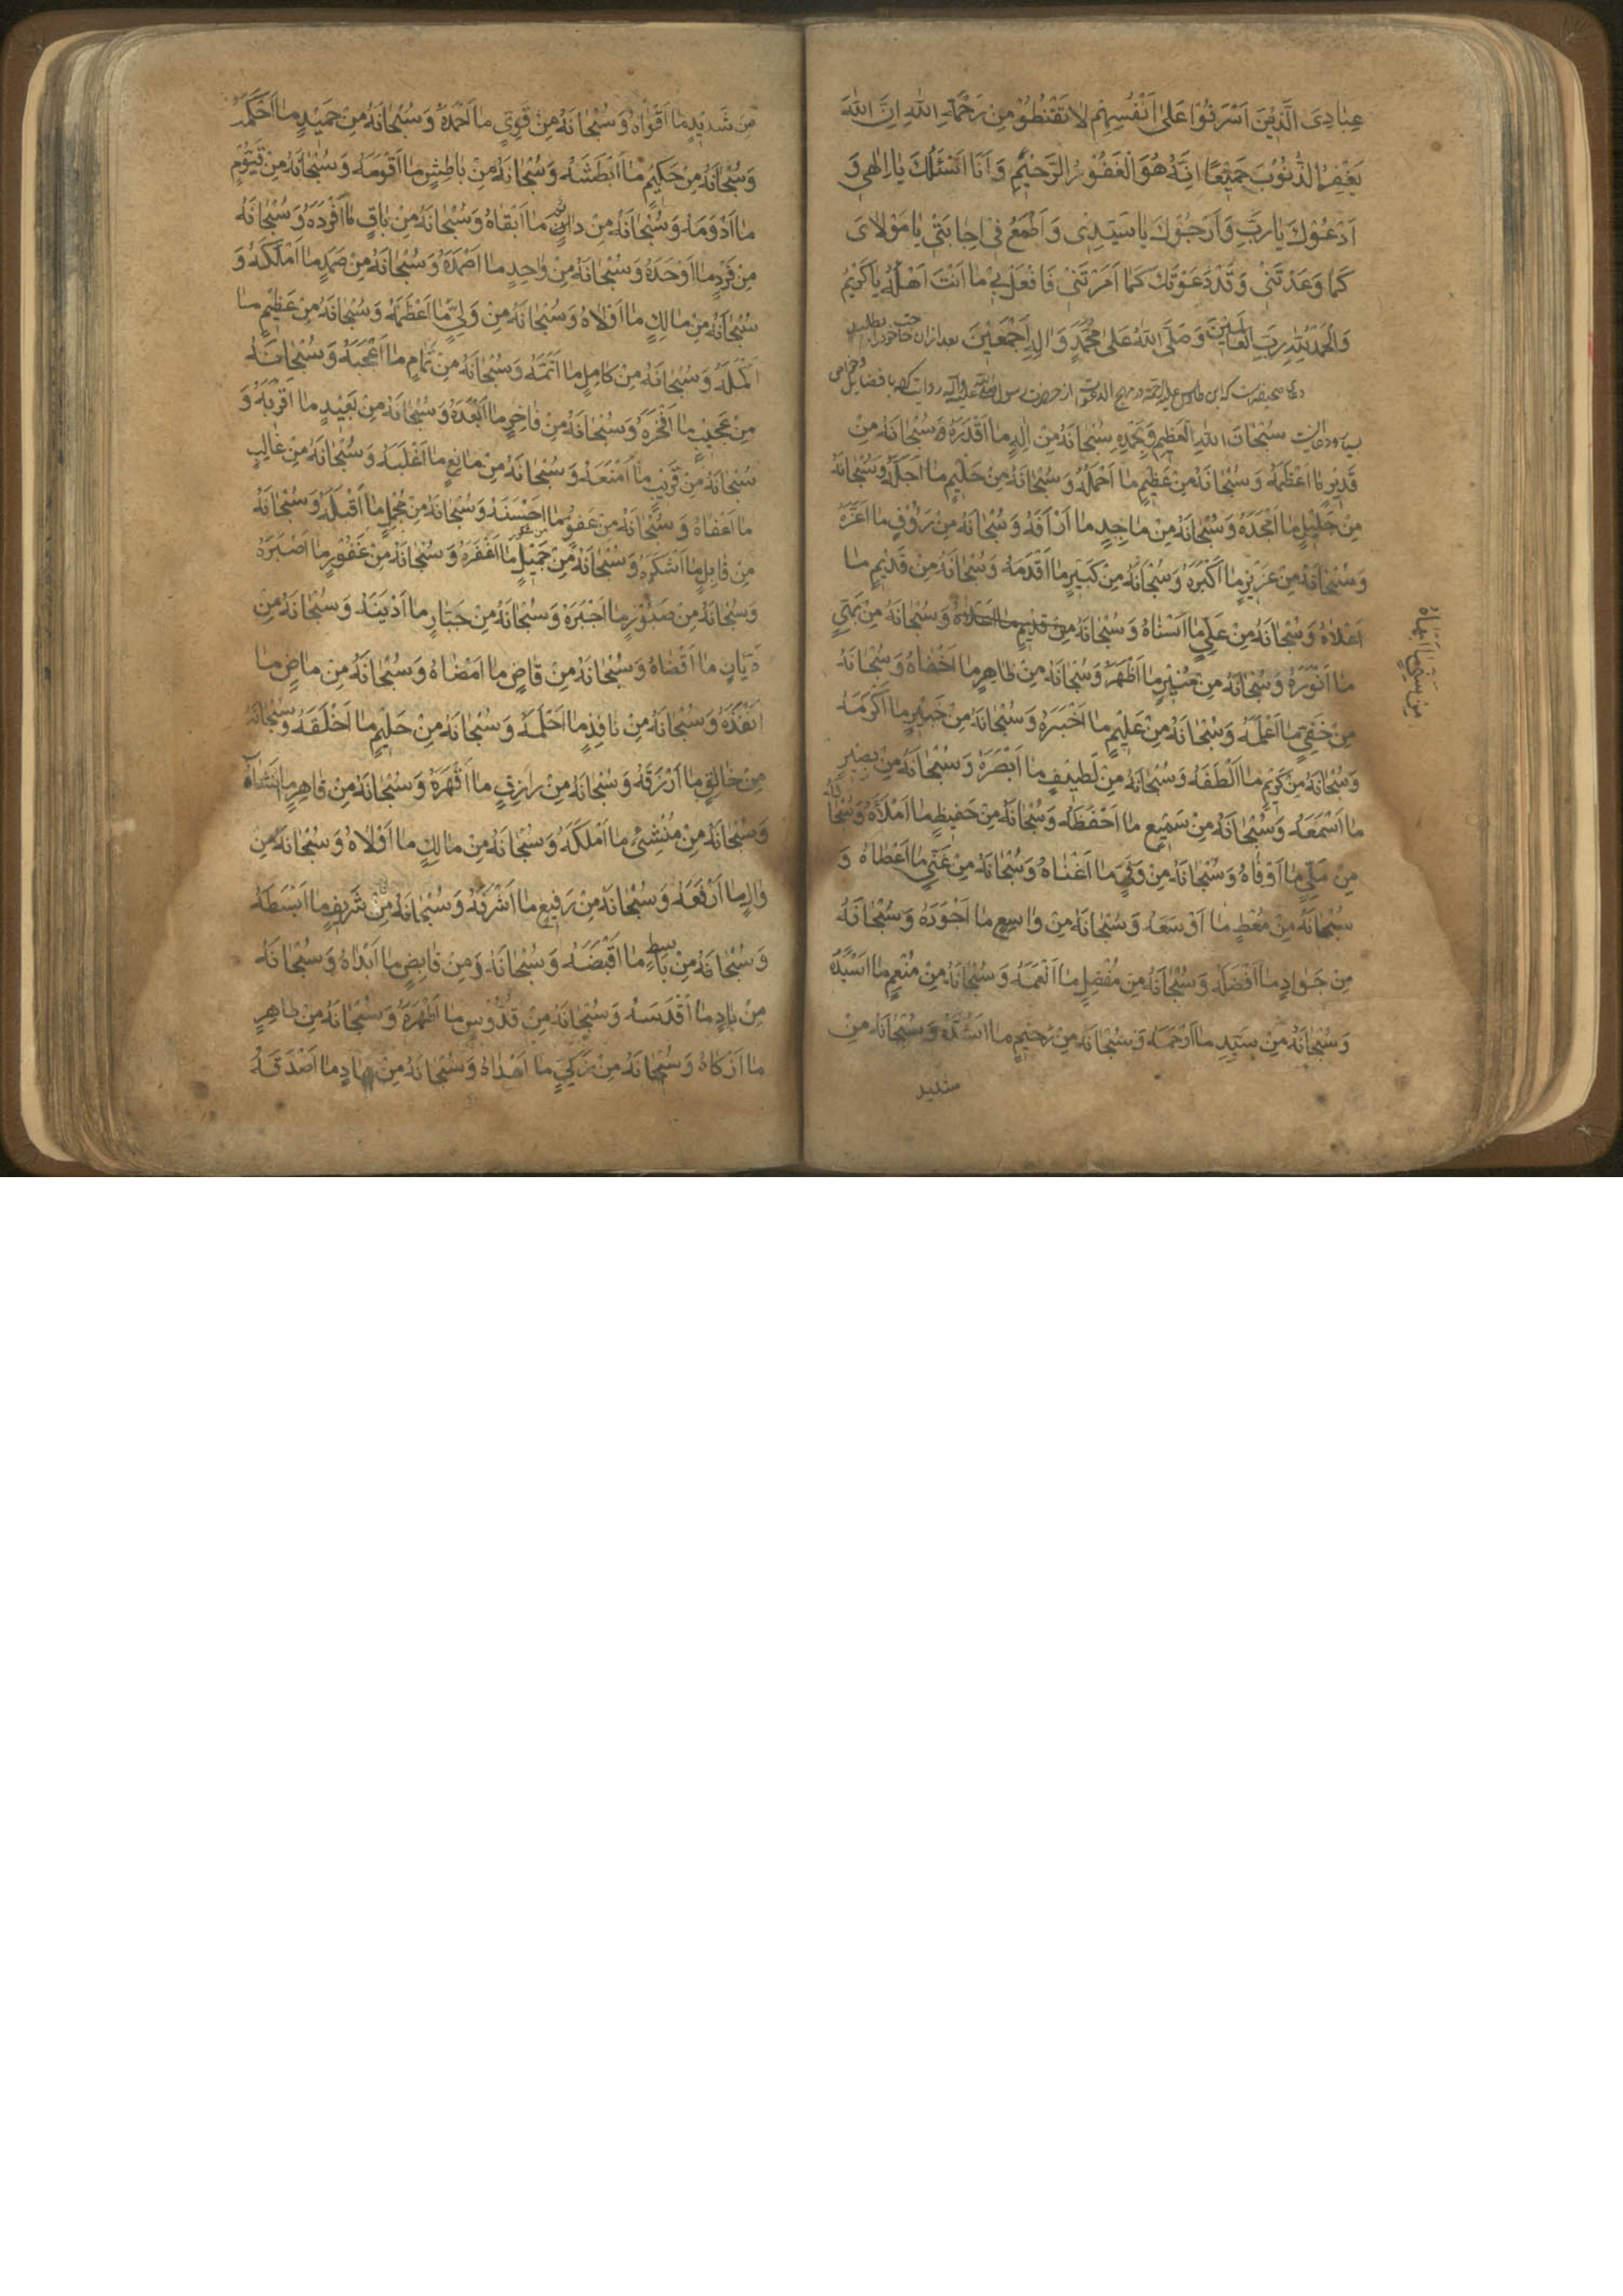 عِبادِیَ الَّذِیْنَ اَسْرَفُوْا عَلیٰ اَنْفُسِهِمْ لاتَقْنَطُوْا مِنْ رَحْمَةِ اللهِ اِنَّ اللهَ
یَغْفِرُ الذُّنُوْبَ جَمِیْعًا اِنَّهُ هُوَ الْغَفُوْرُ الرَّحِیْمُ وَ اَنَا اَسْئَلُكَ یا اِلٰهِی وَ
اَدْعُوْكَ یا رَبِّ وَ اَرْجُوْكَ یا سَیِّدِیْ وَ اَطْمَعُ فِیْ اِجابَتِیْ یا مَوْلایَ
كَما وَعَدْتَنِیْ وَ قَدْ دَعَوْتُكَ كَما اَمَرْتَنِیْ فَافْعَلْ بِیْ ما اَنْتَ اَهْلُهُ یا كَرِیْمُ
وَ الْحَمْدُ لِلّٰهِ رَبِّ الْعالَمِیْنَ وَ صَلَّی اللهُ عَلیٰ مُحَمَّدٍ وَ الِهِ اَجْمَعِیْنَ بعد ازان حاجت خود را بطلبد
دعای صحیفه است که ابن طاوس علیه الرحمة در مهج الدعوات از حضرت رسول صلی الله علیه و آله روایت کرده با فضایل
سُبْحانَ اللهِ الْعَظِیْمِ وَ بِحَمْدِهِ سُبْحانَهُ مِنْ اِلٰهٍ ما اَقْدَرَهُ وَ سُبْحانَهُ مِنْ
قَدِیْرٍ ما اَعْظَمَهُ وَ سُبْحانَهُ مِنْ عَظِیْمٍ ما اَحْلَمَهُ وَ سُبْحانَهُ مِنْ حَلِیْمٍ ما اَجَلَّهُ وَ سُبْحانَهُ
مِنْ جَلِیْلٍ ما اَمْجَدَهُ وَ سُبْحانَهُ مِنْ ماجِدٍ ما اَرْاَفَهُ وَ سُبْحانَهُ مِنْ رَؤُوْفٍ ما اَعَزَّهُ
وَ سُبْحانَهُ مِنْ عَزِیْزٍ ما اَكْبَرَهُ وَ سُبْحانَهُ مِنْ كَبِیْرٍ ما اَقْدَمَهُ وَ سُبْحانَهُ مِنْ قَدِیْمٍ ما
اَعْلاهُ وَ سُبْحانَهُ مِنْ عَلِیٍّ ما اَسْناهُ وَ سُبْحانَهُ وَ سُبْحانَهُ مِنْ بَهِیٍّ
مِنْ سَنِیٍّ ما اَبْهاهُ
ما اَنْوَرَهُ وَ سُبْحانَهُ مِنْ مُنِیْرٍ ما اَظْهَرَهُ وَ سُبْحانَهُ مِنْ ظاهِرٍ ما اَخْفاهُ وَ سُبْحانَهُ
مِنْ خَفِیٍّ ما اَعْلَمَهُ وَ سُبْحانَهُ مِنْ عَلِیْمٍ ما اَخْبَرَهُ وَ سُبْحانَهُ مِنْ خَبِیْرٍ ما اَكْرَمَهُ
وَ سُبْحانَهُ مِنْ كَرِیْمٍ ما اَلْطَفَهُ وَ سُبْحانَهُ مِنْ لَطِیْفٍ ما اَبْصَرَهُ وَ سُبْحانَهُ مِنْ بَصِیْرٍ
ما اَسْمَعَهُ وَ سُبْحانَهُ مِنْ سَمِیْعٍ ما اَحْفَظَهُ وَ سُبْحانَهُ مِنْ حَفِیْظٍ ما اَمْلَأَهُ وَ سُبْحانَهُ
مِنْ مَلِیٍّ ما اَوْفاهُ وَ سُبْحانَهُ مِنْ وَفِیٍّ ما اَغْناهُ وَ سُبْحانَهُ مِنْ غَنِیٍّ ما اَعْطاهُ وَ
سُبْحانَهُ مِنْ مُعْطٍ ما اَوْسَعَهُ وَ سُبْحانَهُ مِنْ واسِعٍ ما اَجْوَدَهُ وَ سُبْحانَهُ
مِنْ جَوادٍ ما اَفْضَلَهُ وَ سُبْحانَهُ مِنْ مُفْضِلٍ ما اَنْعَمَهُ وَ سُبْحانَهُ مِنْ مُنْعِمٍ ما اَسْیَدَهُ
وَ سُبْحانَهُ مِنْ سَیِّدٍ ما اَرْحَمَهُ وَ سُبْحانَهُ مِنْ رَحِیْمٍ ما اَشَدَّهُ وَ سُبْحانَهُ مِنْ
شدید
مِنْ شَدِیْدٍ ما اَقْواهُ وَ سُبْحانَهُ مِنْ قَوِیٍّ ما اَحْمَدَهُ وَ سُبْحانَهُ مِنْ حَمِیْدٍ ما اَحْكَمَهُ
وَ سُبْحانَهُ مِنْ حَكِیْمٍ ما اَبْطَشَهُ وَ سُبْحانَهُ مِنْ باطِشٍ ما اَقْوَمَهُ وَ سُبْحانَهُ مِنْ قَیُّوْمٍ
ما اَدْوَمَهُ وَ سُبْحانَهُ مِنْ دائِمٍ ما اَبْقاهُ وَ سُبْحانَهُ مِنْ باقٍ ما اَفْرَدَهُ وَ سُبْحانَهُ
مِنْ فَرْدٍ ما اَوْحَدَهُ وَ سُبْحانَهُ مِنْ واحِدٍ ما اَصْمَدَهُ وَ سُبْحانَهُ مِنْ صَمَدٍ ما اَمْلَكَهُ وَ
سُبْحانَهُ مِنْ مالِكٍ ما اَوْلاهُ وَ سُبْحانَهُ مِنْ وَلِیٍّ ما اَعْظَمَهُ وَ سُبْحانَهُ مِنْ عَظِیْمٍ ما
اَكْمَلَهُ وَ سُبْحانَهُ مِنْ كامِلٍ ما اَتَمَّهُ وَ سُبْحانَهُ مِنْ تَمامٍ ما اَعْجَبَهُ وَ سُبْحانَهُ
مِنْ عَجِیْبٍ ما اَفْخَرَهُ وَ سُبْحانَهُ مِنْ فاخِرٍ ما اَبْعَدَهُ وَ سُبْحانَهُ مِنْ بَعِیْدٍ ما اَقْرَبَهُ وَ
سُبْحانَهُ مِنْ قَرِیْبٍ ما اَمْنَعَهُ وَ سُبْحانَهُ مِنْ مانِعٍ ما اَغْلَبَهُ وَ سُبْحانَهُ مِنْ غالِبٍ
ما اَعْفاهُ وَ سُبْحانَهُ مِنْ عَفُوٍّ ما اَحْسَنَهُ وَ سُبْحانَهُ مِنْ مُجْمِلٍ ما اَقْبَلَهُ وَ سُبْحانَهُ
مِنْ قابِلٍ ما اَشْكَرَهُ وَ سُبْحانَهُ مِنْ جَمِیْلٍ ما اَغْفَرَهُ وَ سُبْحانَهُ مِنْ غَفُوْرٍ ما اَصْبَرَهُ
وَ سُبْحانَهُ مِنْ صَبُوْرٍ ما اَجْبَرَهُ وَ سُبْحانَهُ مِنْ جَبّارٍ ما اَدْیَنَهُ وَ سُبْحانَهُ مِنْ
دَیّانٍ ما اَقْضاهُ وَ سُبْحانَهُ مِنْ قاضٍ ما اَمْضاهُ وَ سُبْحانَهُ مِنْ ماضٍ ما
اَنْفَذَهُ وَ سُبْحانَهُ مِنْ نافِذٍ ما اَحْلَمَهُ وَ سُبْحانَهُ مِنْ حَلِیْمٍ ما اَخْلَقَهُ وَ سُبْحانَهُ
مِنْ خالِقٍ ما اَرْزَقَهُ وَ سُبْحانَهُ مِنْ رازِقٍ ما اَقْهَرَهُ وَ سُبْحانَهُ مِنْ قاهِرٍ ما اَنْشَاَهُ
وَ سُبْحانَهُ مِنْ مُنْشِئٍ ما اَمْلَكَهُ وَ سُبْحانَهُ مِنْ مالِكٍ ما اَوْلاهُ وَ سُبْحانَهُ مِنْ
والٍ ما اَرْفَعَهُ وَ سُبْحانَهُ مِنْ رَفِیْعٍ ما اَشْرَفَهُ وَ سُبْحانَهُ مِنْ شَرِیْفٍ ما اَبْسَطَهُ
وَ سُبْحانَهُ مِنْ باسِطٍ ما اَقْبَضَهُ وَ سُبْحانَهُ وَ مِنْ قابِضٍ ما اَبْداهُ وَ سُبْحانَهُ
مِنْ بادٍ ما اَقْدَسَهُ وَ سُبْحانَهُ مِنْ قُدُّوْسٍ ما اَطْهَرَهُ وَ سُبْحانَهُ مِنْ طاهِرٍ
ما اَزْكاهُ وَ سُبْحانَهُ مِنْ زَكِیٍّ ما اَهْداهُ وَ سُبْحانَهُ مِنْ هادٍ ما اَصْدَقَهُ